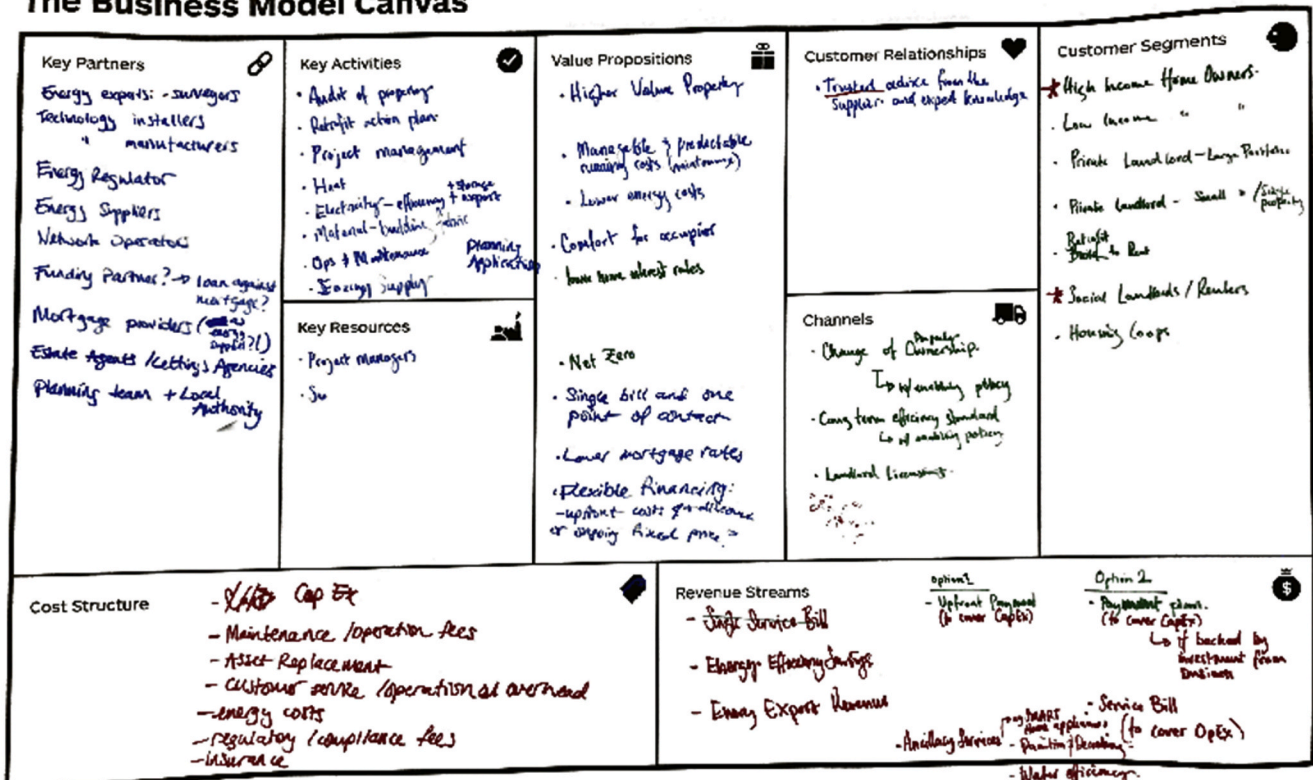 The Business Model Canvas
Key Partners
Energy experts: - surveyors
Technology installers
" manufacturers
Energy Regulator
Energy Suppliers
Network Operators
Funding Partner? → loan against
mortgage?
Mortgage providers (
energy
supplier?!)
Estate Agents / Lettings Agencies
Planning team + Local
Authority
Key Activities
· Audit of property
· Retrofit action plan
· Project management
· Heat
+ storage
· Electricity - efficiency + export
· Material - building fabric
· Ops & Maintenance
Planning
Application
· Energy Supply
Key Resources
· Project managers
· Su
Value Propositions
· Higher Value Property
· Manageable & predictable
running costs (maintenance)
· Lower energy costs
· Comfort for occupier
· lower interest rates
· Net Zero
· Single bill and one
point of contact
· Lower mortgage rates
· Flexible financing:
- upfront costs
or ongoing fixed price
Customer Relationships
· Trusted advice from the
supplier and expert knowledge
Channels
Property
· Change of Ownership.
↳ w/ enabling policy
· Long term efficiency standard
↳ w/ enabling policy
· Landlord Licensing.
Customer Segments
* High Income Home Owners.
· Low Income " "
· Private Landlord - Large Portfolio
· Private Landlord - Small " / Single
property
Retrofit
· Build to Rent
* Social Landlords / Renters
· Housing Coops
Cost Structure
- Cap Ex
- Maintenance / operation fees
- Asset Replacement
- customer service / operational overhead
- energy costs
- regulatory / compliance fees
- insurance
Revenue Streams
- Single Service Bill
- Energy Efficiency Savings
- Energy Export Revenue
- Ancillary Services
eg SMART
home appliances
- Painting & Decorating
- Water efficiency
option 1
- Upfront Payment
(to cover CapEx)
Option 2
· Payment plan.
(to cover CapEx)
↳ if backed by
investment from
business
· Service Bill
(to cover OpEx)